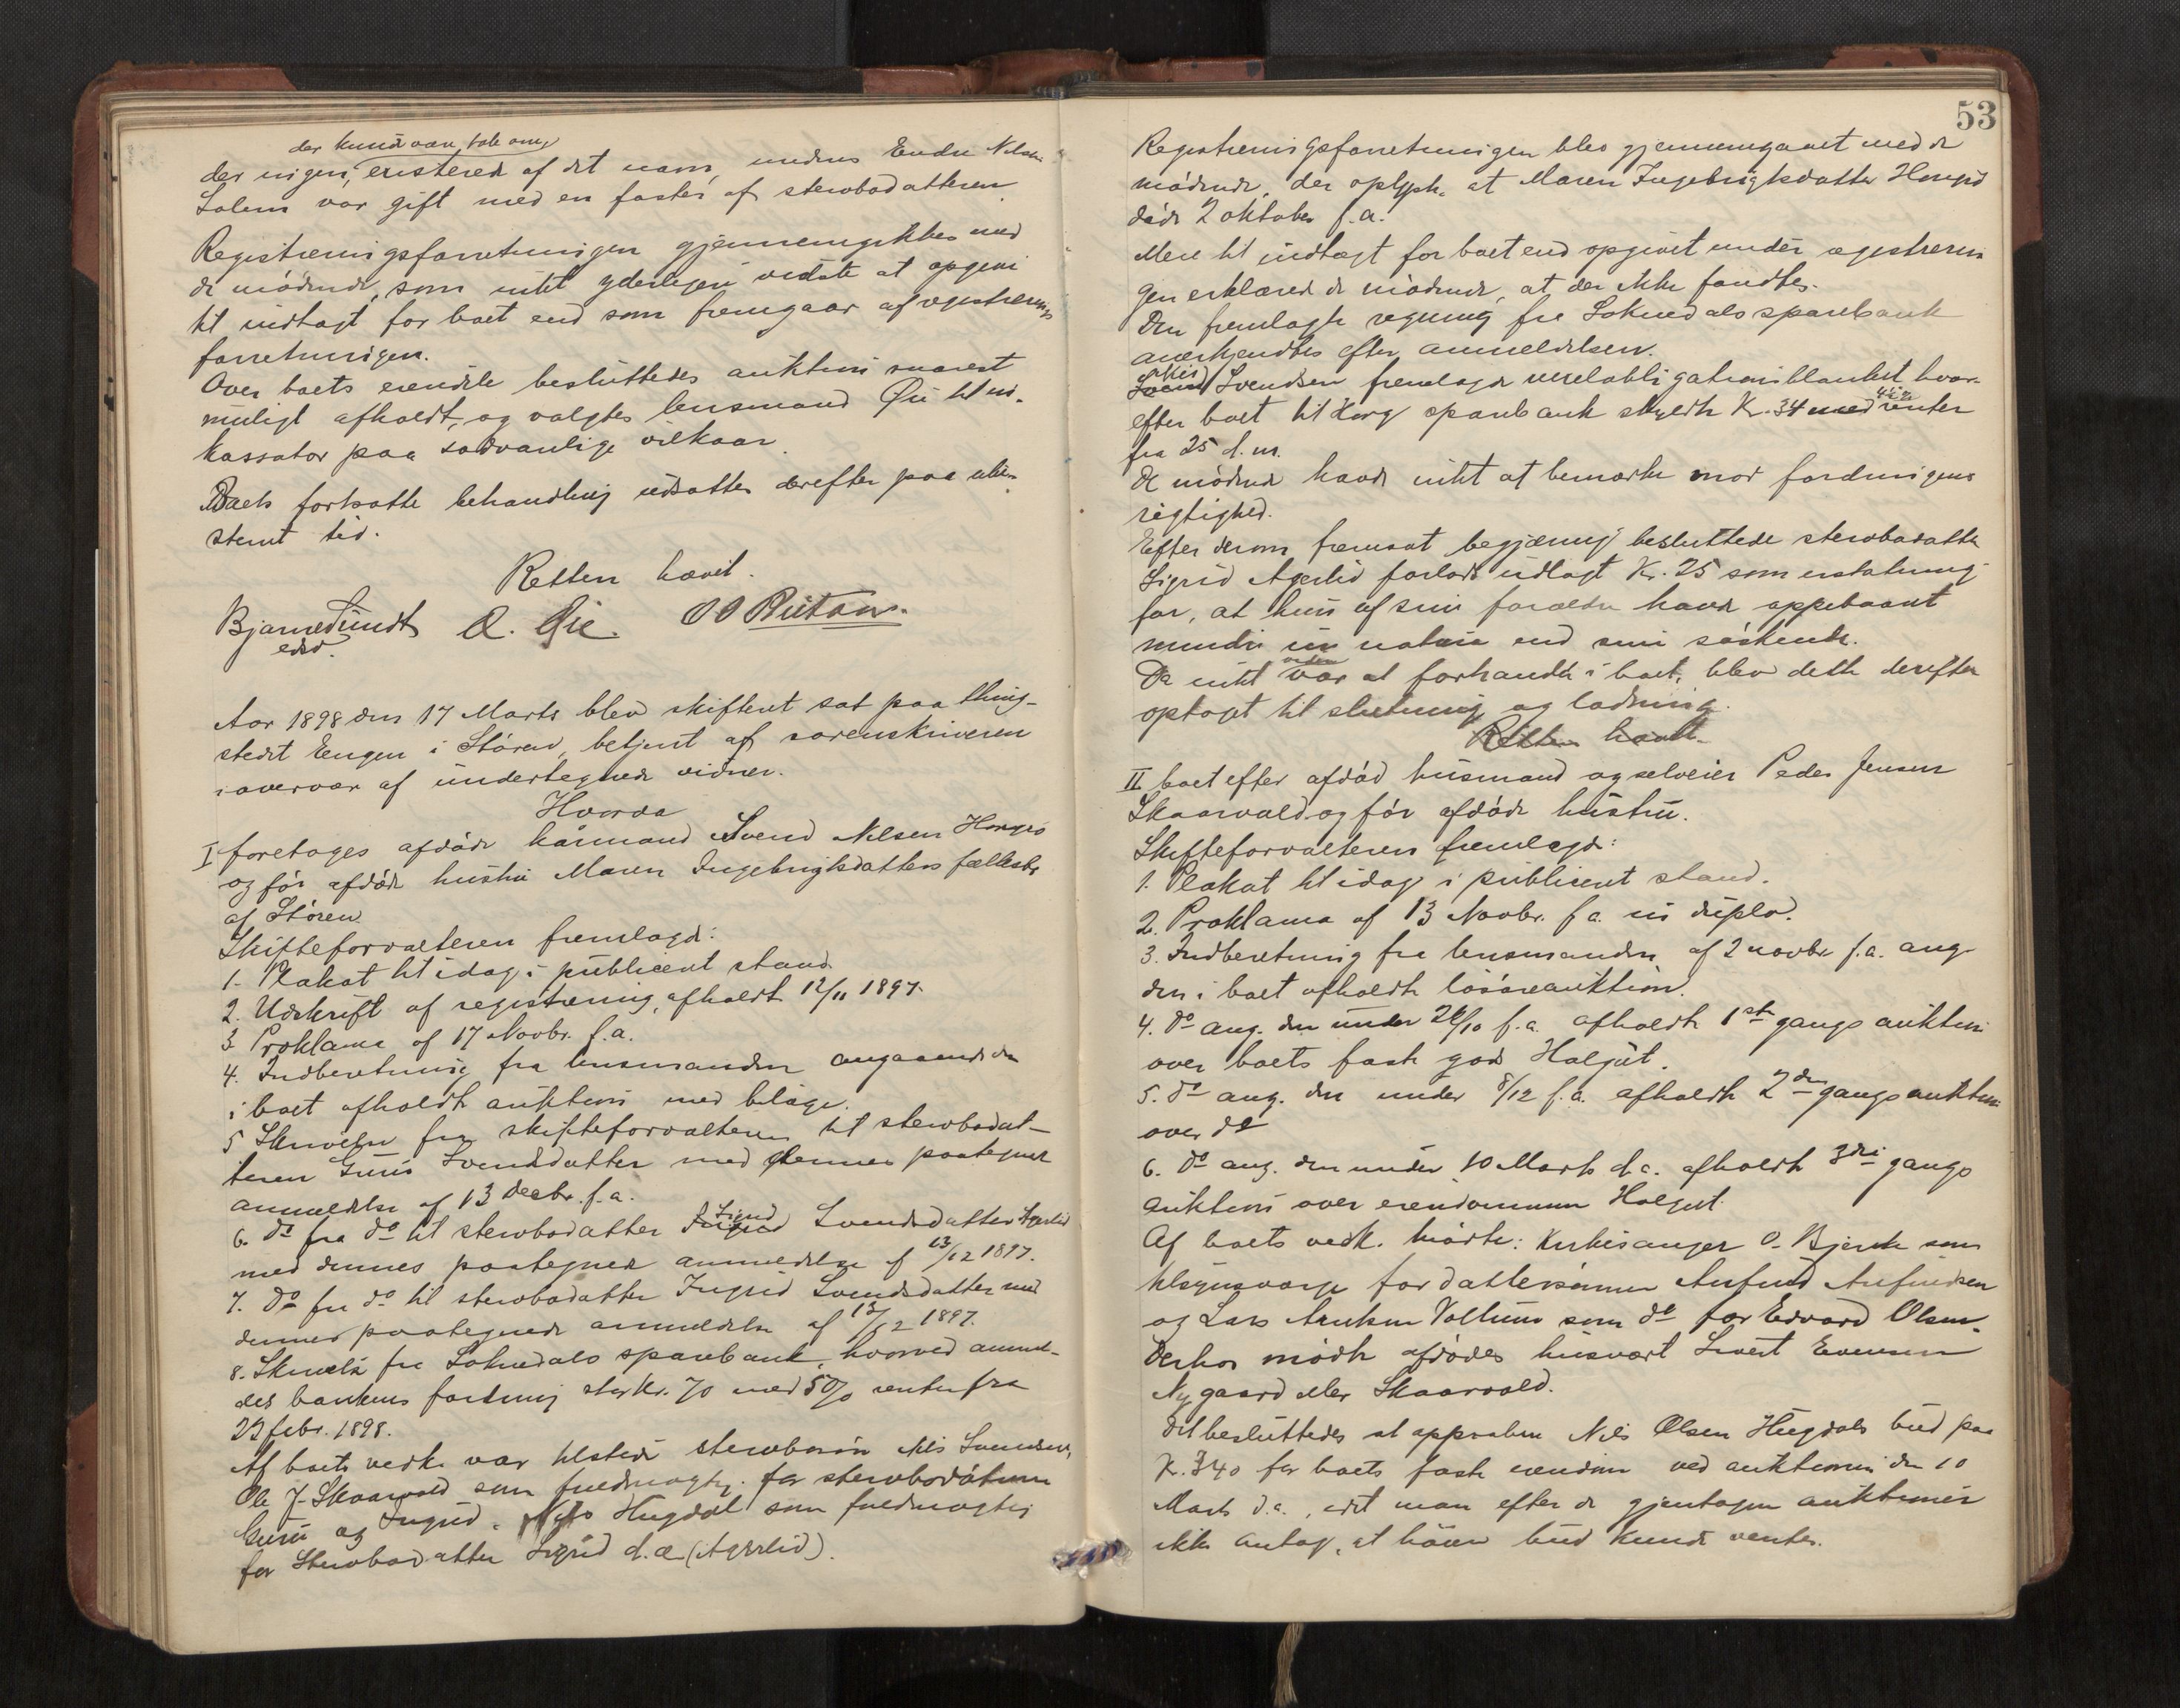 der kunde være tale om,
der ingen, existered af det navn, medens Endre Nilsen
Solem var gift med en faster af stervbodatteren.
Registreringsforretningen gjennemgikkes med
de mødende, som intet yderligere vidste at opgive
til indtægt for boet end som fremgaar af registrerings
forretningen.
Over boets eiendele besluttedes auktion snarest
muligt afholdt, og valgtes lensmand Øie til in-
kassator paa sædvanlige vilkaar.
Boets fortsatte behandling udsattes derefter paa ube-
stemt tid.
Retten hævet.
Bjarne Sundt O. Øie. O O
edsv.
Aar 1898 den 17 Marts blev skifteret sat paa thing-
stedet Engen i Støren, betjent af sorenskriveren
i overvær af undertegnede vidner.
Hvorda
I foretoges afdøde kårmand Svend Nilsen Hongrø
og før afdøde hustru Maren Ingebrigtsdatters fællesbo
af Støren.
Skifteforvalteren fremlagde:
1. Plakat til idag i publiceret stand.
2. Udskrift af registrering, afholdt 12/11 1897.
3. Proklama af 17 Novbr. f.a.
4. Indberetning fra lensmanden angaaende den
i boet afholdt auktion med bilage.
5. Skrivelse fra skifteforvalteren til stervbodat-
teren Guru Svendsdatter med dennes paategnede
anmeldelse af 13 decbr. f.a.
6. Do fra do til stervbodatter Sigrid Svendsdatter Agerlid
med dennes paategnede anmeldelse af 13/12 1897.
7. Do fra do til stervbodatter Ingrid Svendsdatter med
dennes paategnede anmeldelse af 13/12 1897.
8. Skrivelse fra Soknedals sparebank, hvorved anmel-
des bankens fordring stor Kr. 70 med 5% renter fra
27 febr. 1898.
Af boets vedk. var tilstede stervbosøn Nils Svendsen,
Ole J. Skaarvold som fuldmægtig for stervbodøtrene
Guru og Ingrid. Nils Hugdal som fuldmægtig
for Stervbodatter Sigrid d.æ (Agerlid).
53
Registreringsforretningen blev gjennemgaaet med de
mødende, der oplyste, at Maren Ingebrigtsdatter Hongrø
døde 2 oktober f.a.
Mere til indtægt for boet end opgivet under registrerin
gen erklærede de mødende, at der ikke fandtes.
Den fremlagte regning fra Soknedals sparebank
anerkjendtes efter anmeldelsen.
Nils Svendsen fremlagde vexelobligationsblanket hvor-
efter boet til Horg sparebank skyldte Kr. 34 med 4½% renter
fra 25 d.m.
De mødende havde intet at bemærke mod fordringens
rigtighed.
Efter derom fremsat begjæring besluttede stervbodatter
Sigrid Agerlid forlods udlagt Kr. 25 som erstatning
for, at hun af sine forældre havde oppebaaret
mindre in natura end sine søskende.
Da intet videre var at forhandle i boet, blev dette derefter
optaget til slutning og lodning.
Retten hævet.
II boet efter afdød husmand og selveier Peder Jensen
Skaarvold og før afdøde hustru.
Skifteforvalteren fremlagde:
1. Plakat til idag i publiceret stand.
2. Proklama af 13 Novbr. f.a. in duplo.
3. Indberetning fra lensmanden af 2 novbr f.a. ang.
den i boet afholdte løsøreauktion.
4. Do ang. den under 26/10 f.a. afholdte 1ste gangs auktion
over boets faste gods Halgut.
5. Do ang. den under 8/12 f.a. afholdte 2den gangs auktion
over do
6. Do ang. den under 10 Marts d.a. afholdte 3die gangs
auktion over eiendommen Halgut.
Af boets vedk. mødte: Kirkesanger O. Bjerke som
tilsynsværge for dattersønnen Arnfind Arnfindsen
og Lars Arntsen Voltum som do for Edvard Olsen.
Derhos mødte afdødes husvært Sivert Evensen
Nygaard eller Skaarvold.
Det besluttedes at approbere Nils Olsen Hugdals bud paa
K. 340 for boets faste eiendom ved auktionen den 10
Marts d.a., idet man efter de gjentagne auktioner
ikke antog, at høiere bud kunde ventes.